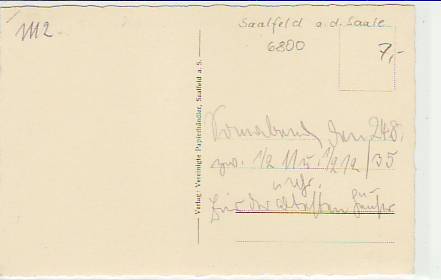 1112.
Saalfeld a. d. Saale
6800
7,-
Verlag: Vereinigte Papierhändler, Saalfeld a. S.
Sonnabend, den 24.8.
zw. 1/2 11 u. 1/2 12 / 35
Uhr.
Für die